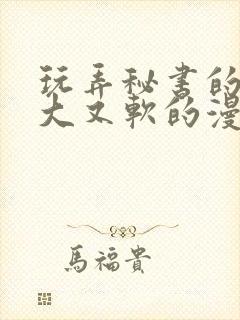 玩弄秘书的
大又軟的漫
馬福貴